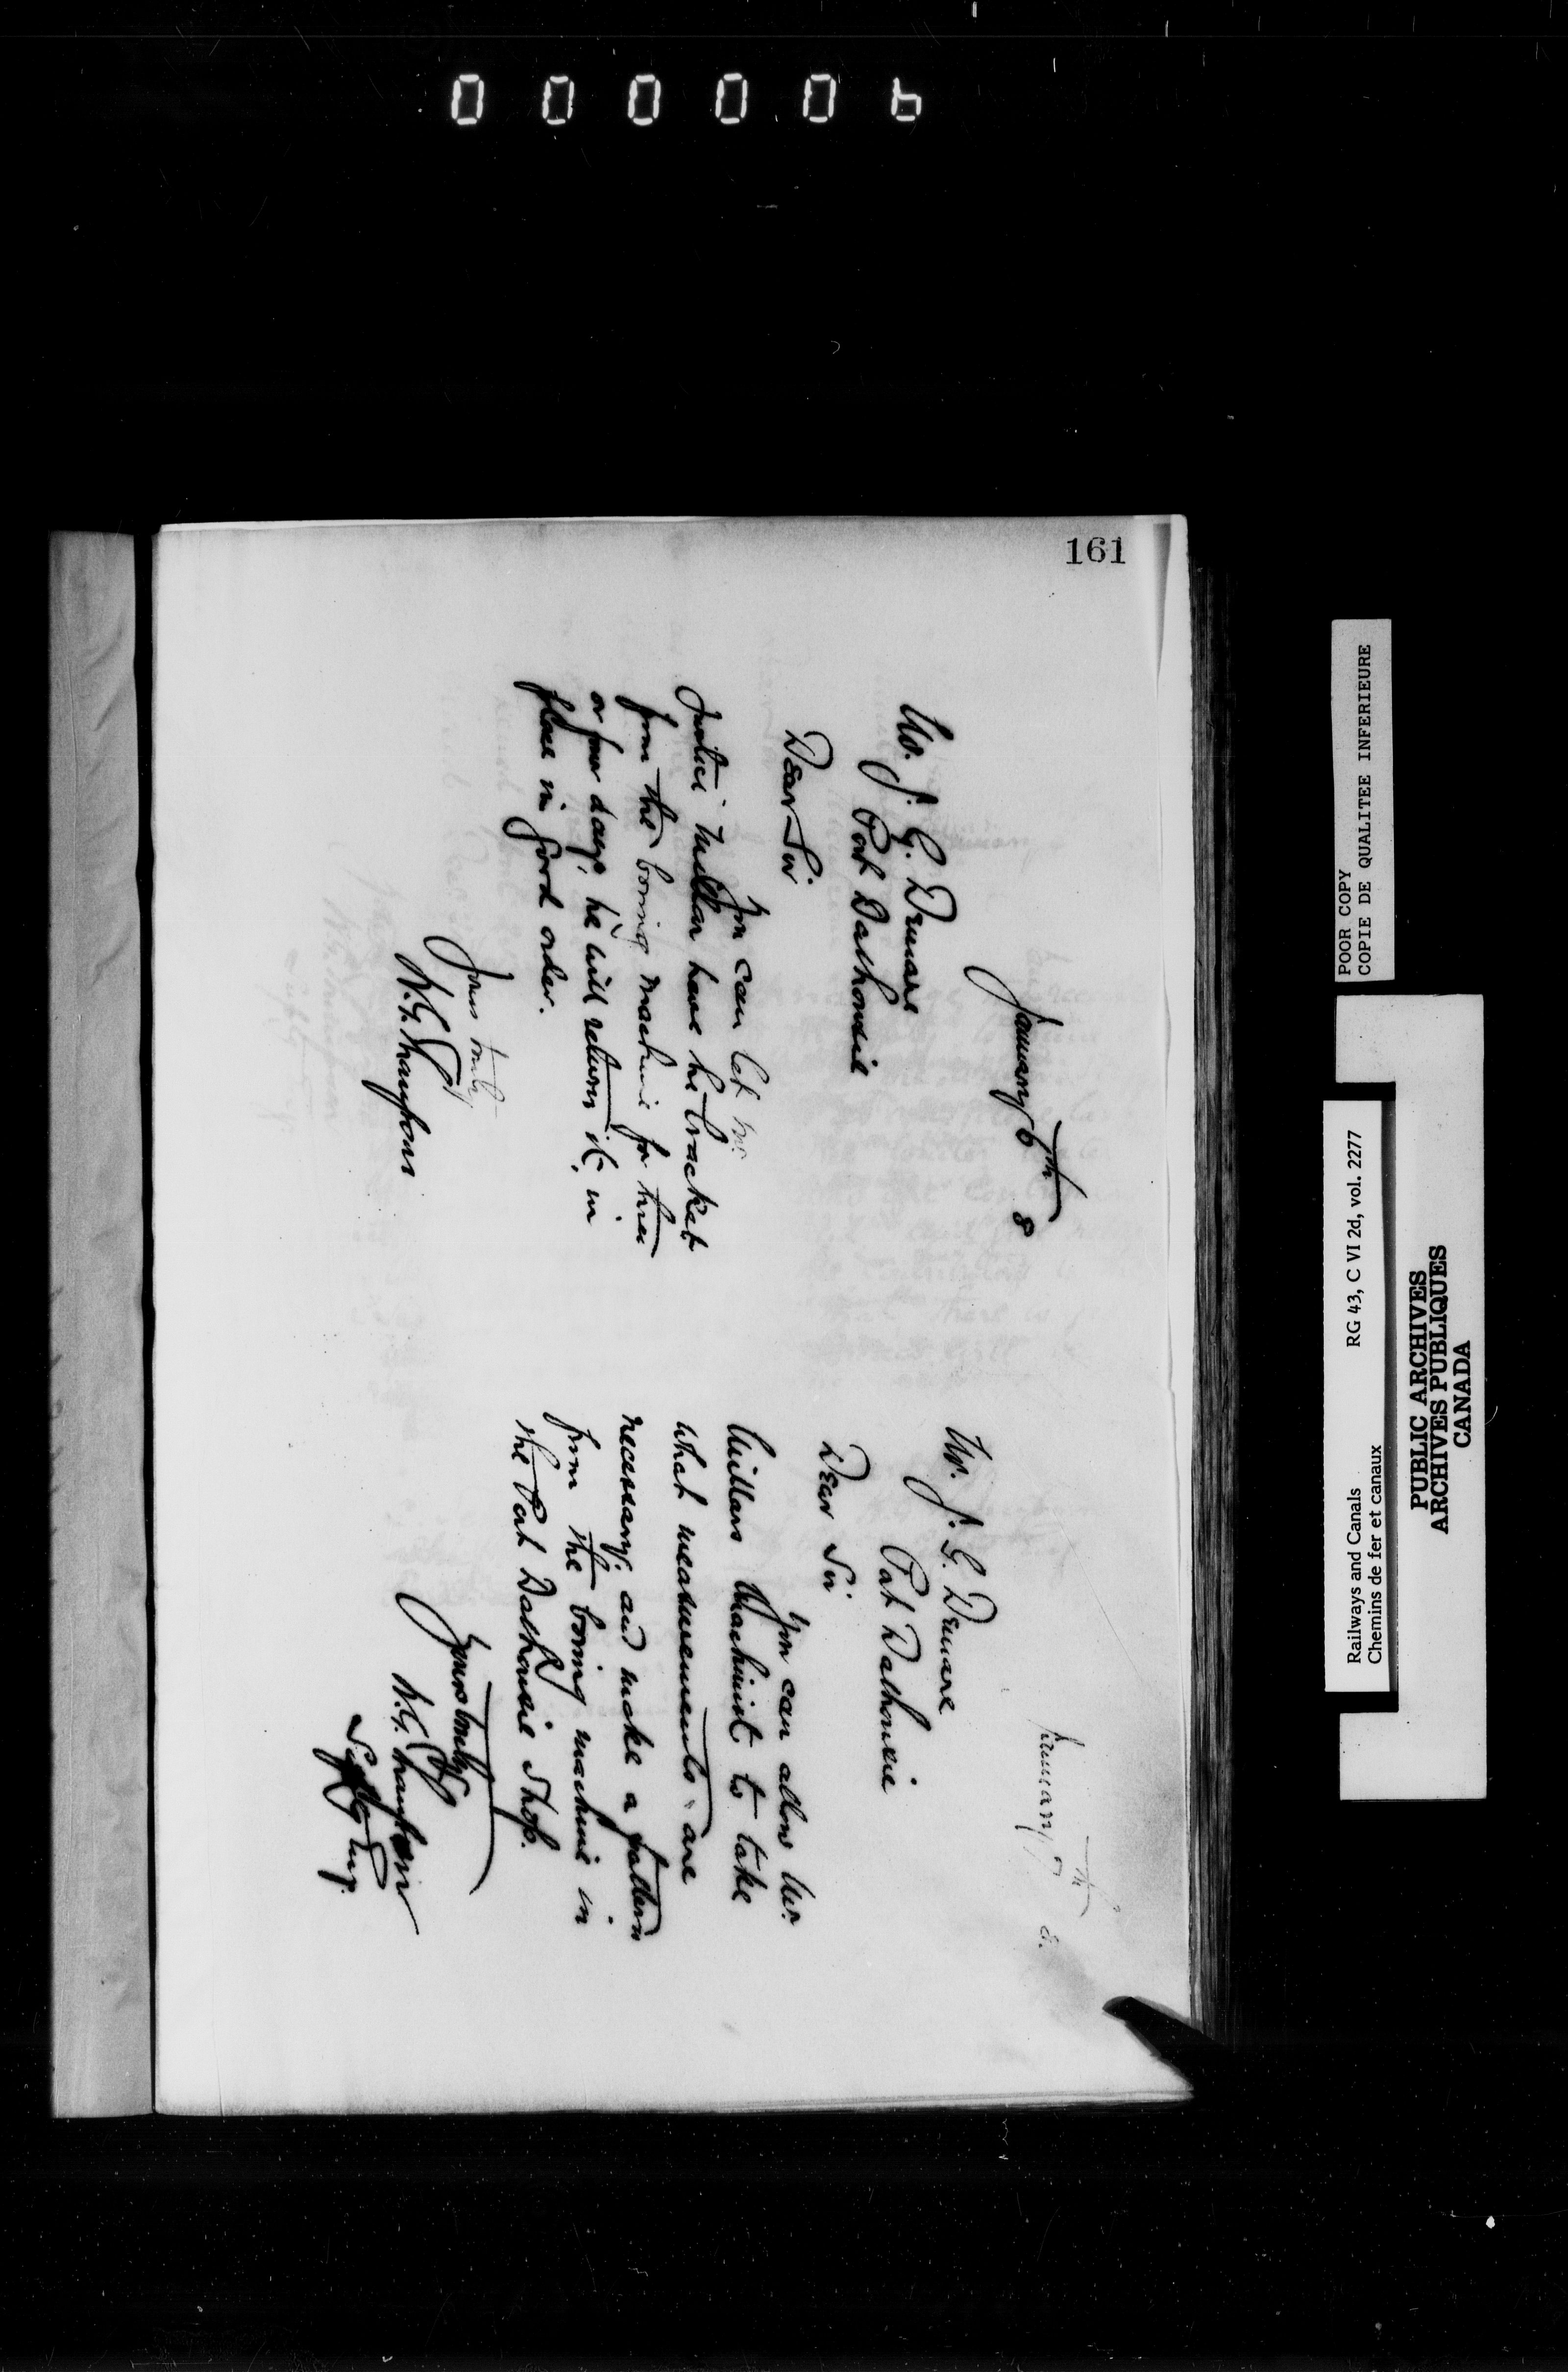 000006
161
January 6th 8
Mr. J. G. Demare
Port Dalhousie
Dear Sir
You can let Mr.
Justus Millar have the bracket
from the boring machine for three
or four days, he will return it in
place in good order.
Yours truly
W. G. Thompson
January 7th 8.
Mr. J. G. Demare
Port Dalhousie
Dear Sir
You can allow Mr.
Millars Machinist to take
what measurements are
necessary, and make a pattern
from the boring machine in
the Port Dalhousie Shop.
Yours truly
W. G. Thompson
Supt. Eng.
POOR COPY
COPIE DE QUALITEE INFERIEURE
Railways and Canals RG 43, C VI 2d, vol. 2277
Chemins de fer et canaux
PUBLIC ARCHIVES
ARCHIVES PUBLIQUES
CANADA